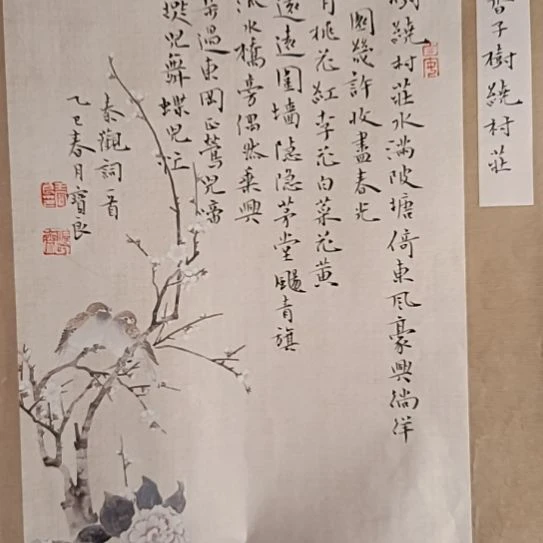 香子樹繞村莊
樹繞村莊水滿陂塘倚東風豪興徜徉
園幾許收盡春光
有桃花紅李花白菜花黃
遠遠圍墻隱隱茅堂颺青旗
流水橋旁偶然乘興
步過東岡正鶯兒啼
兒舞蝶兒忙
秦觀詞一首
乙巳春月寶良